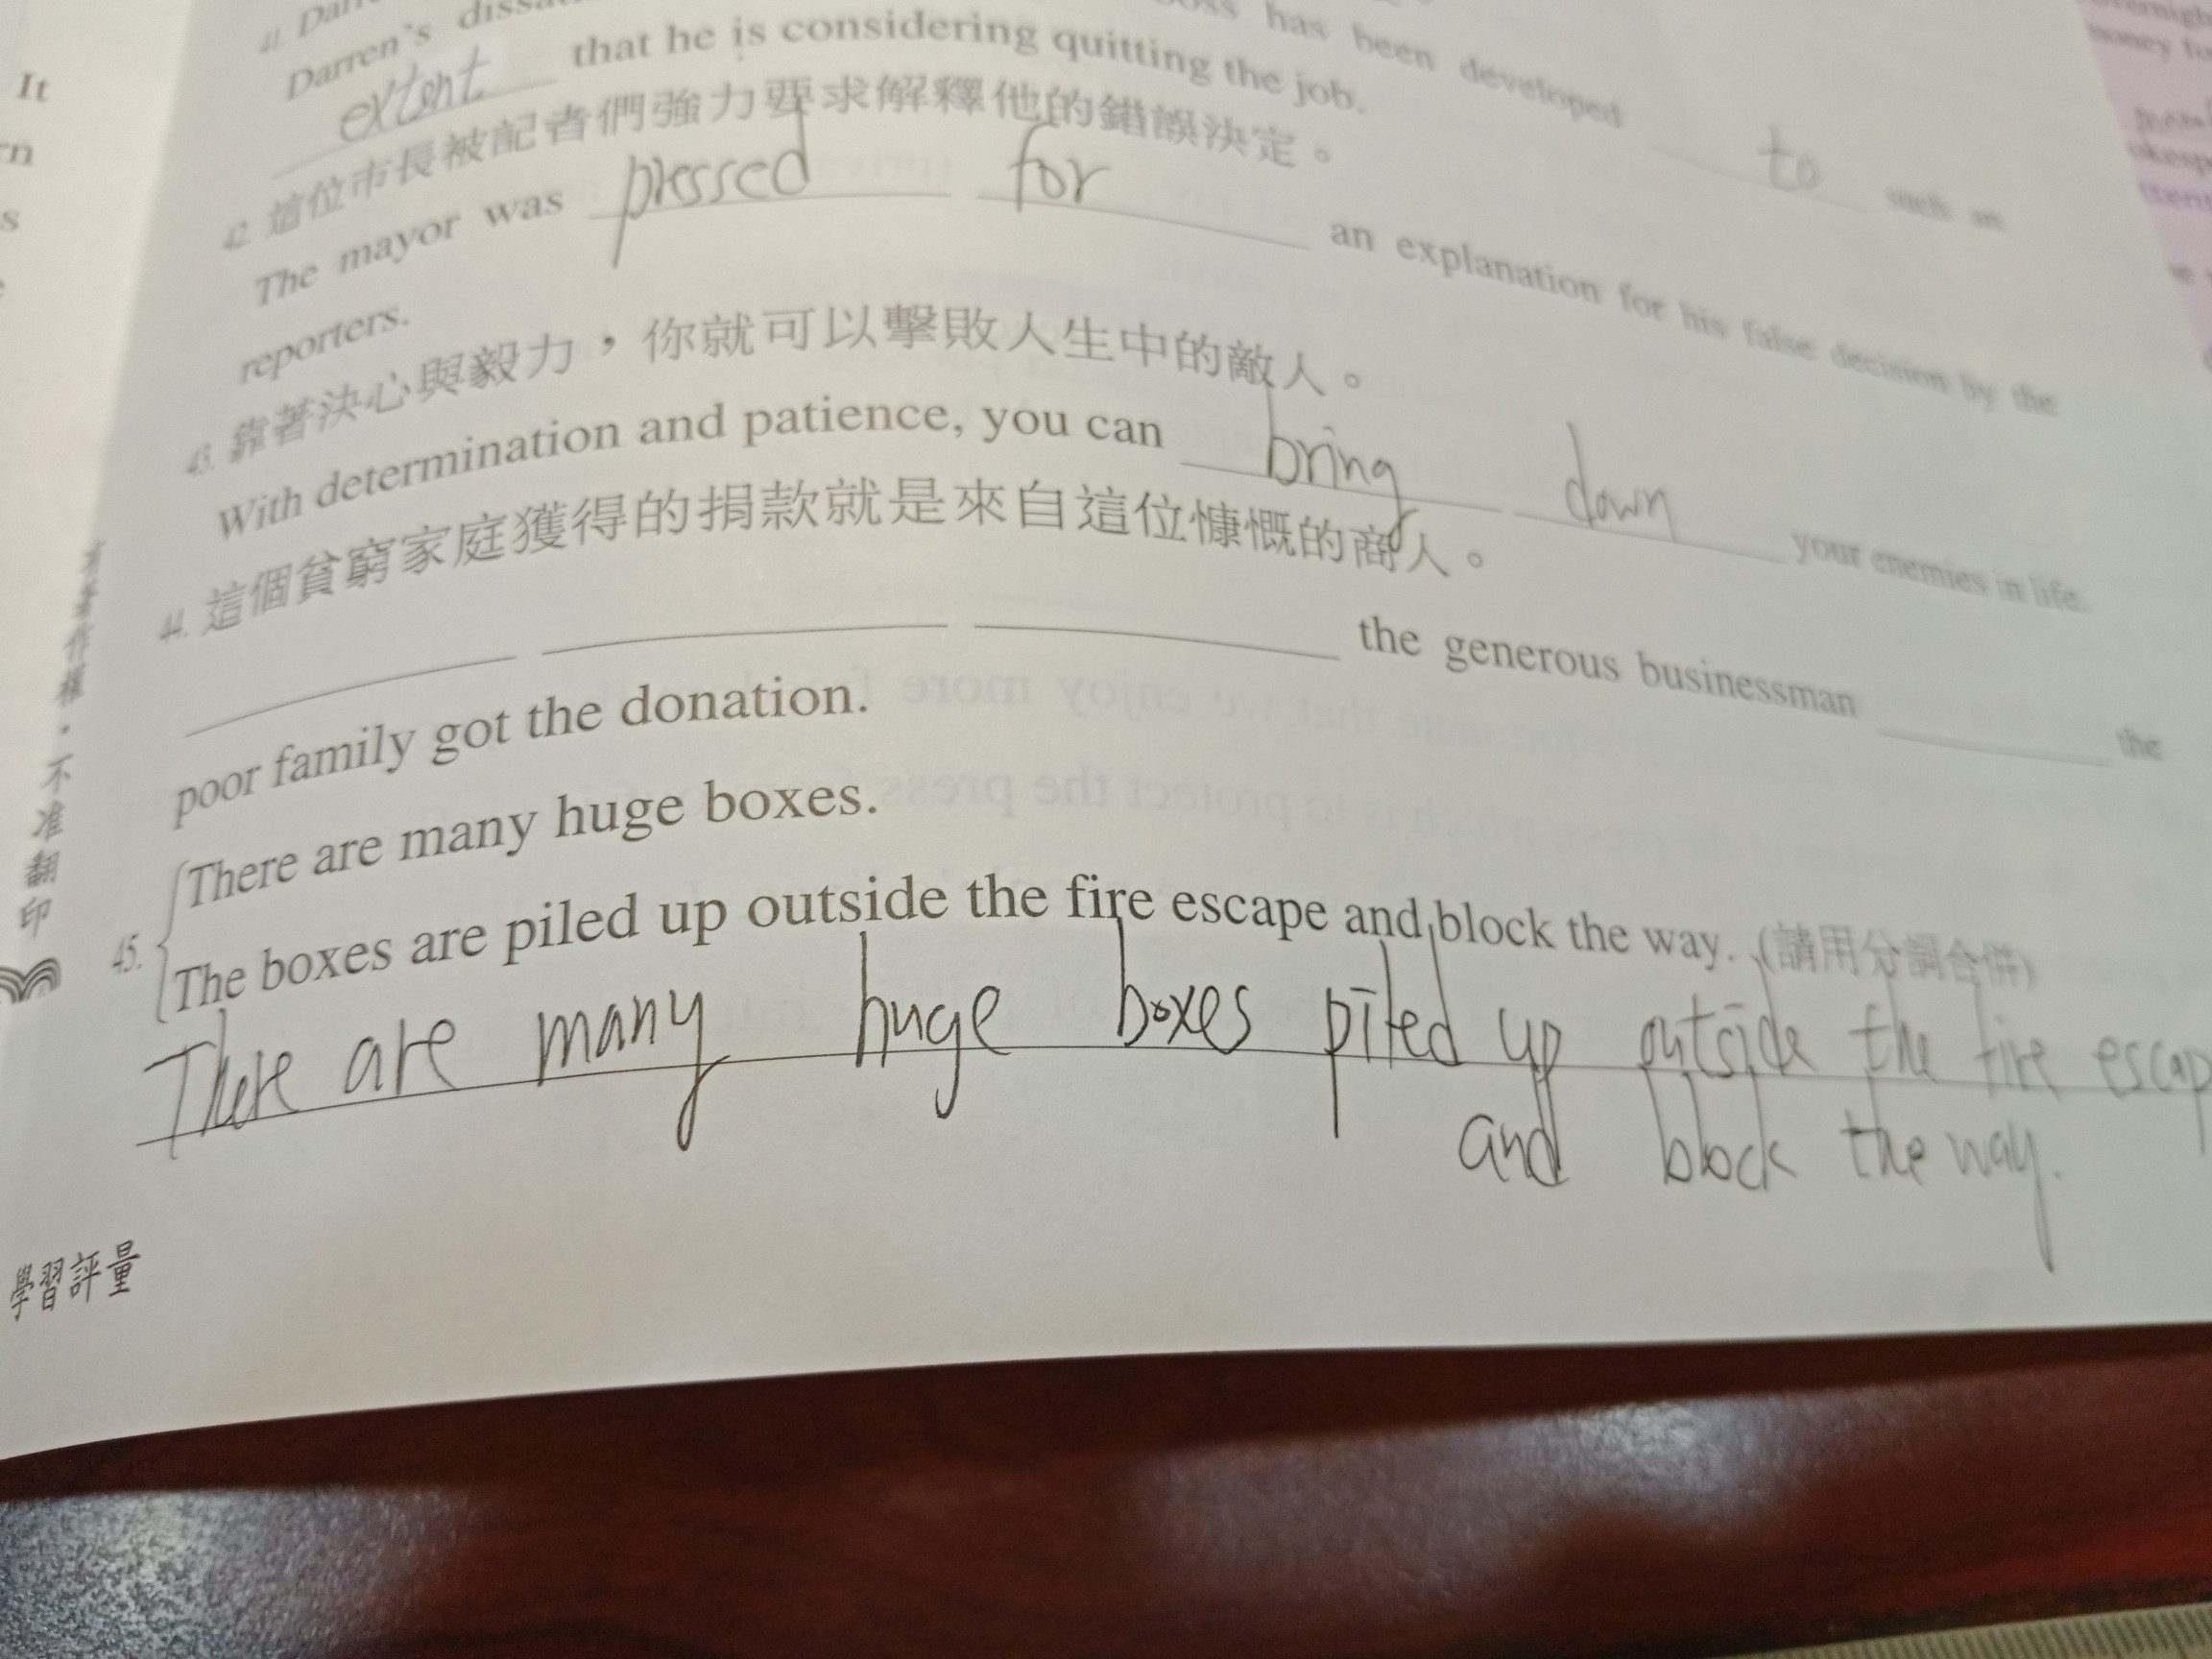 41. Dar
Darren's diss oss has been developed to such an
extent that he is considering quitting the job.
42. 這位市長被記者們強力要求解釋他的錯誤決定。
The mayor was pressed for an explanation for his false decision by the
reporters.
43. 靠著決心與毅力，你就可以擊敗人生中的敵人。
With determination and patience, you can bring down your enemies in life.
44. 這個貧窮家庭獲得的捐款就是來自這位慷慨的商人。
the generous businessman the
poor family got the donation.
45. There are many huge boxes.
The boxes are piled up outside the fire escape and block the way. (請用分詞合併)
There are many huge boxes piled up outside the fire escap
and block the way.
學習評量
有著作權・不准翻印
It
rn
s